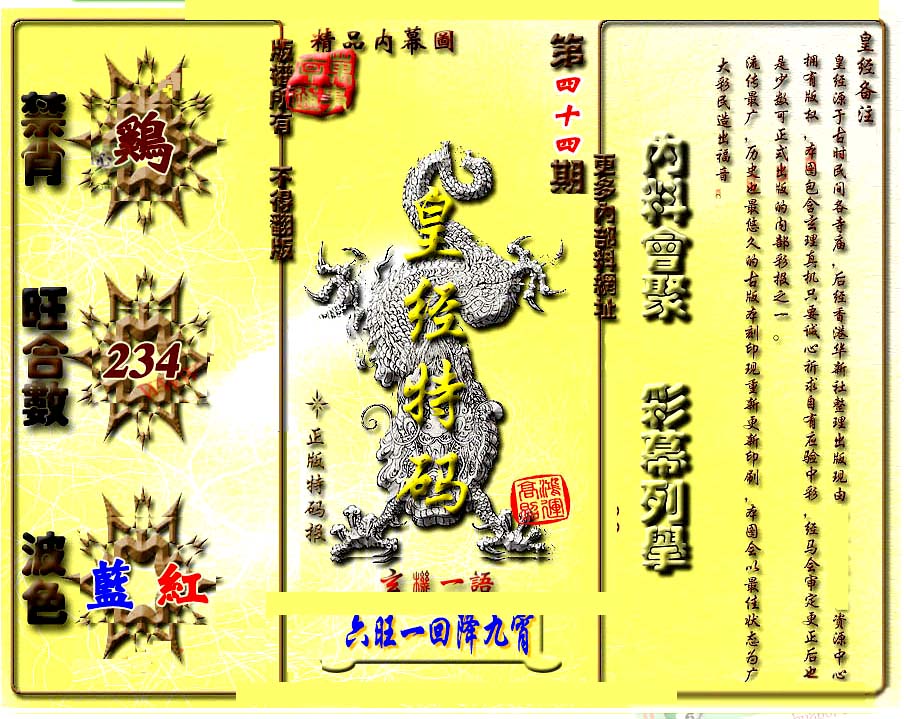 皇经备注
皇经源于古时民间各寺庙，后经香港华新社整理出版现由
资源中心
拥有版权，本图包含玄理真机只要诚心祈求自有应验中彩，经马会审定更正后也
是少数可正式出版的内部彩报之一。
流传最广，历史也最悠久的古版本刻印现重新更新印刷，本图会以最佳状态为广
大彩民造出福音
內料會聚
彩幕列舉
更多內部料網址
第四十四期
精品内幕圖
版權所有 不得翻版
皇经特码
正版特码报
鴻運高照
玄機一語
六旺一回降九宵
禁肖
鷄
旺合數
234
波色
藍 紅